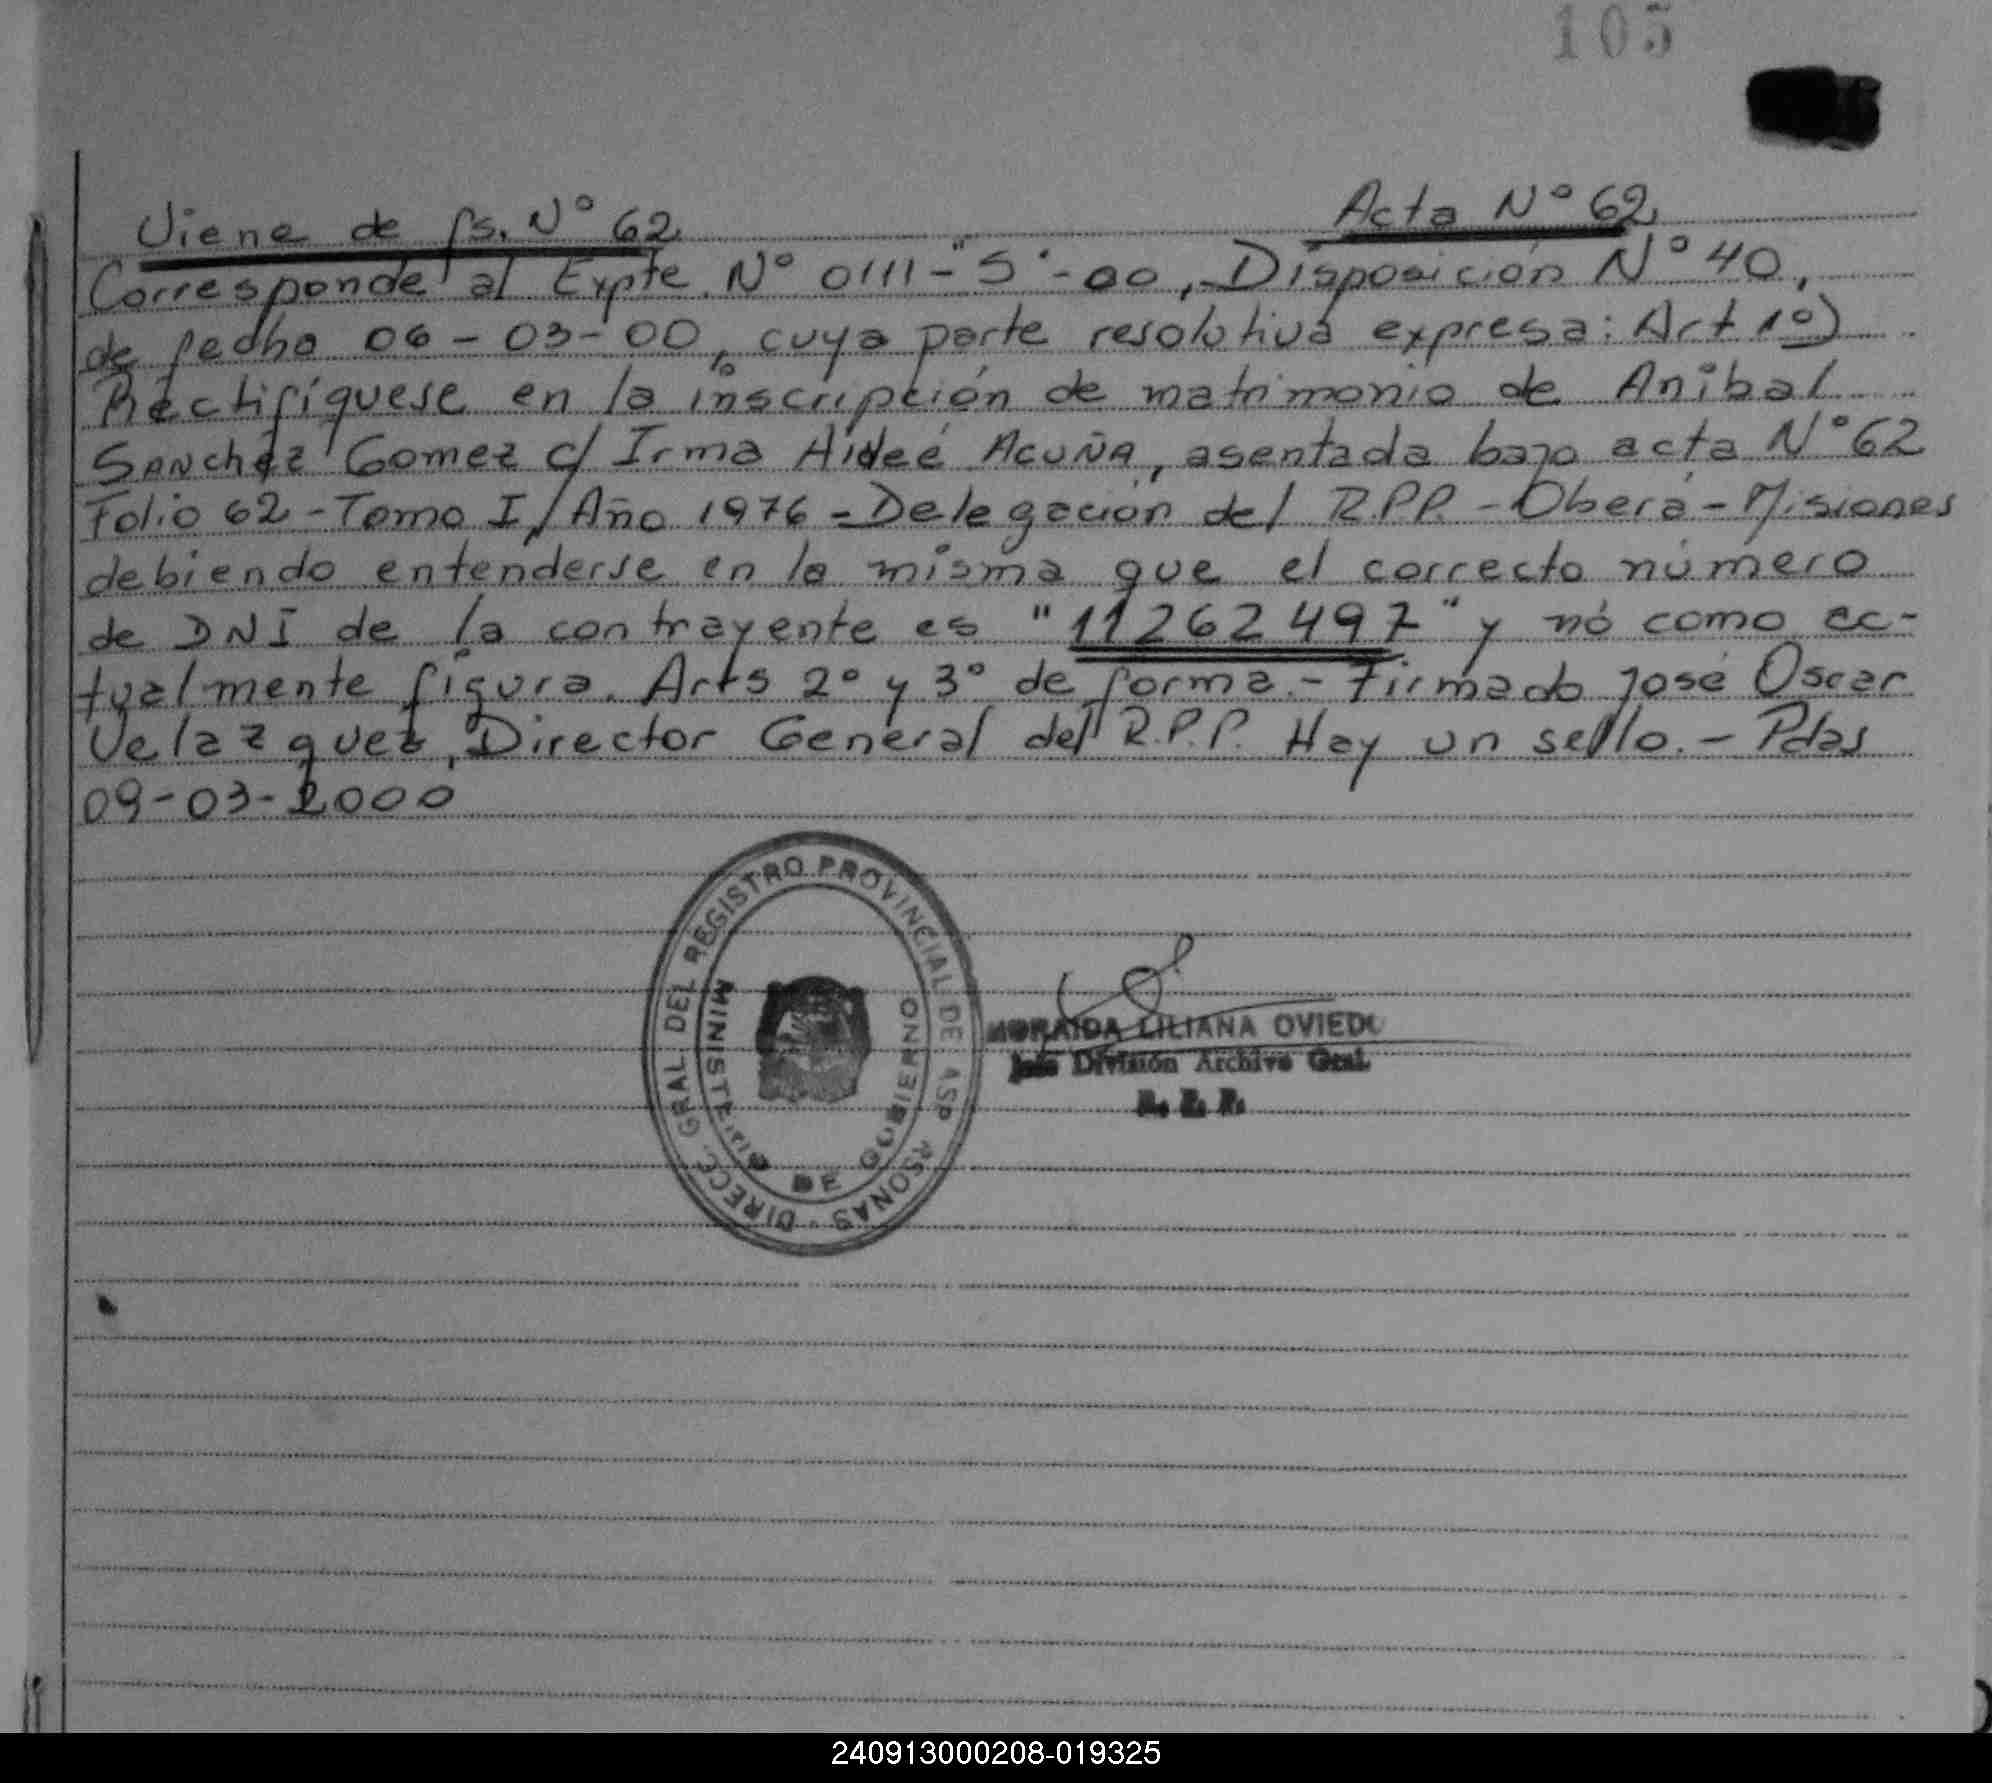 105
Viene de fs. Nº 62
Acta Nº 62
Corresponde al Expte. Nº 0111-"S"-00, Disposición Nº 40,
de fecha 06-03-00, cuya parte resolutiva expresa: Art 1º)
Rectifíquese en la inscripción de matrimonio de Anibal
Sanchez Gomez c/ Irma Hideé Acuña, asentada bajo acta Nº 62
Folio 62 - Tomo I / Año 1976 - Delegación del R.P.P. - Oberá - Misiones
debiendo entenderse en la misma que el correcto número
de DNI de la contrayente es "11262497" y nó como ac-
tualmente figura. Arts 2º y 3º de forma.- Firmado José Oscar
Velazquez, Director General del R.P.P. Hay un sello.- Pdas
09-03-2000
DIRECC. GRAL. DEL REGISTRO PROVINCIAL DE LAS PERSONAS
MINISTERIO DE GOBIERNO
LILIANA OVIEDO
División Archivo Gral.
240913000208-019325